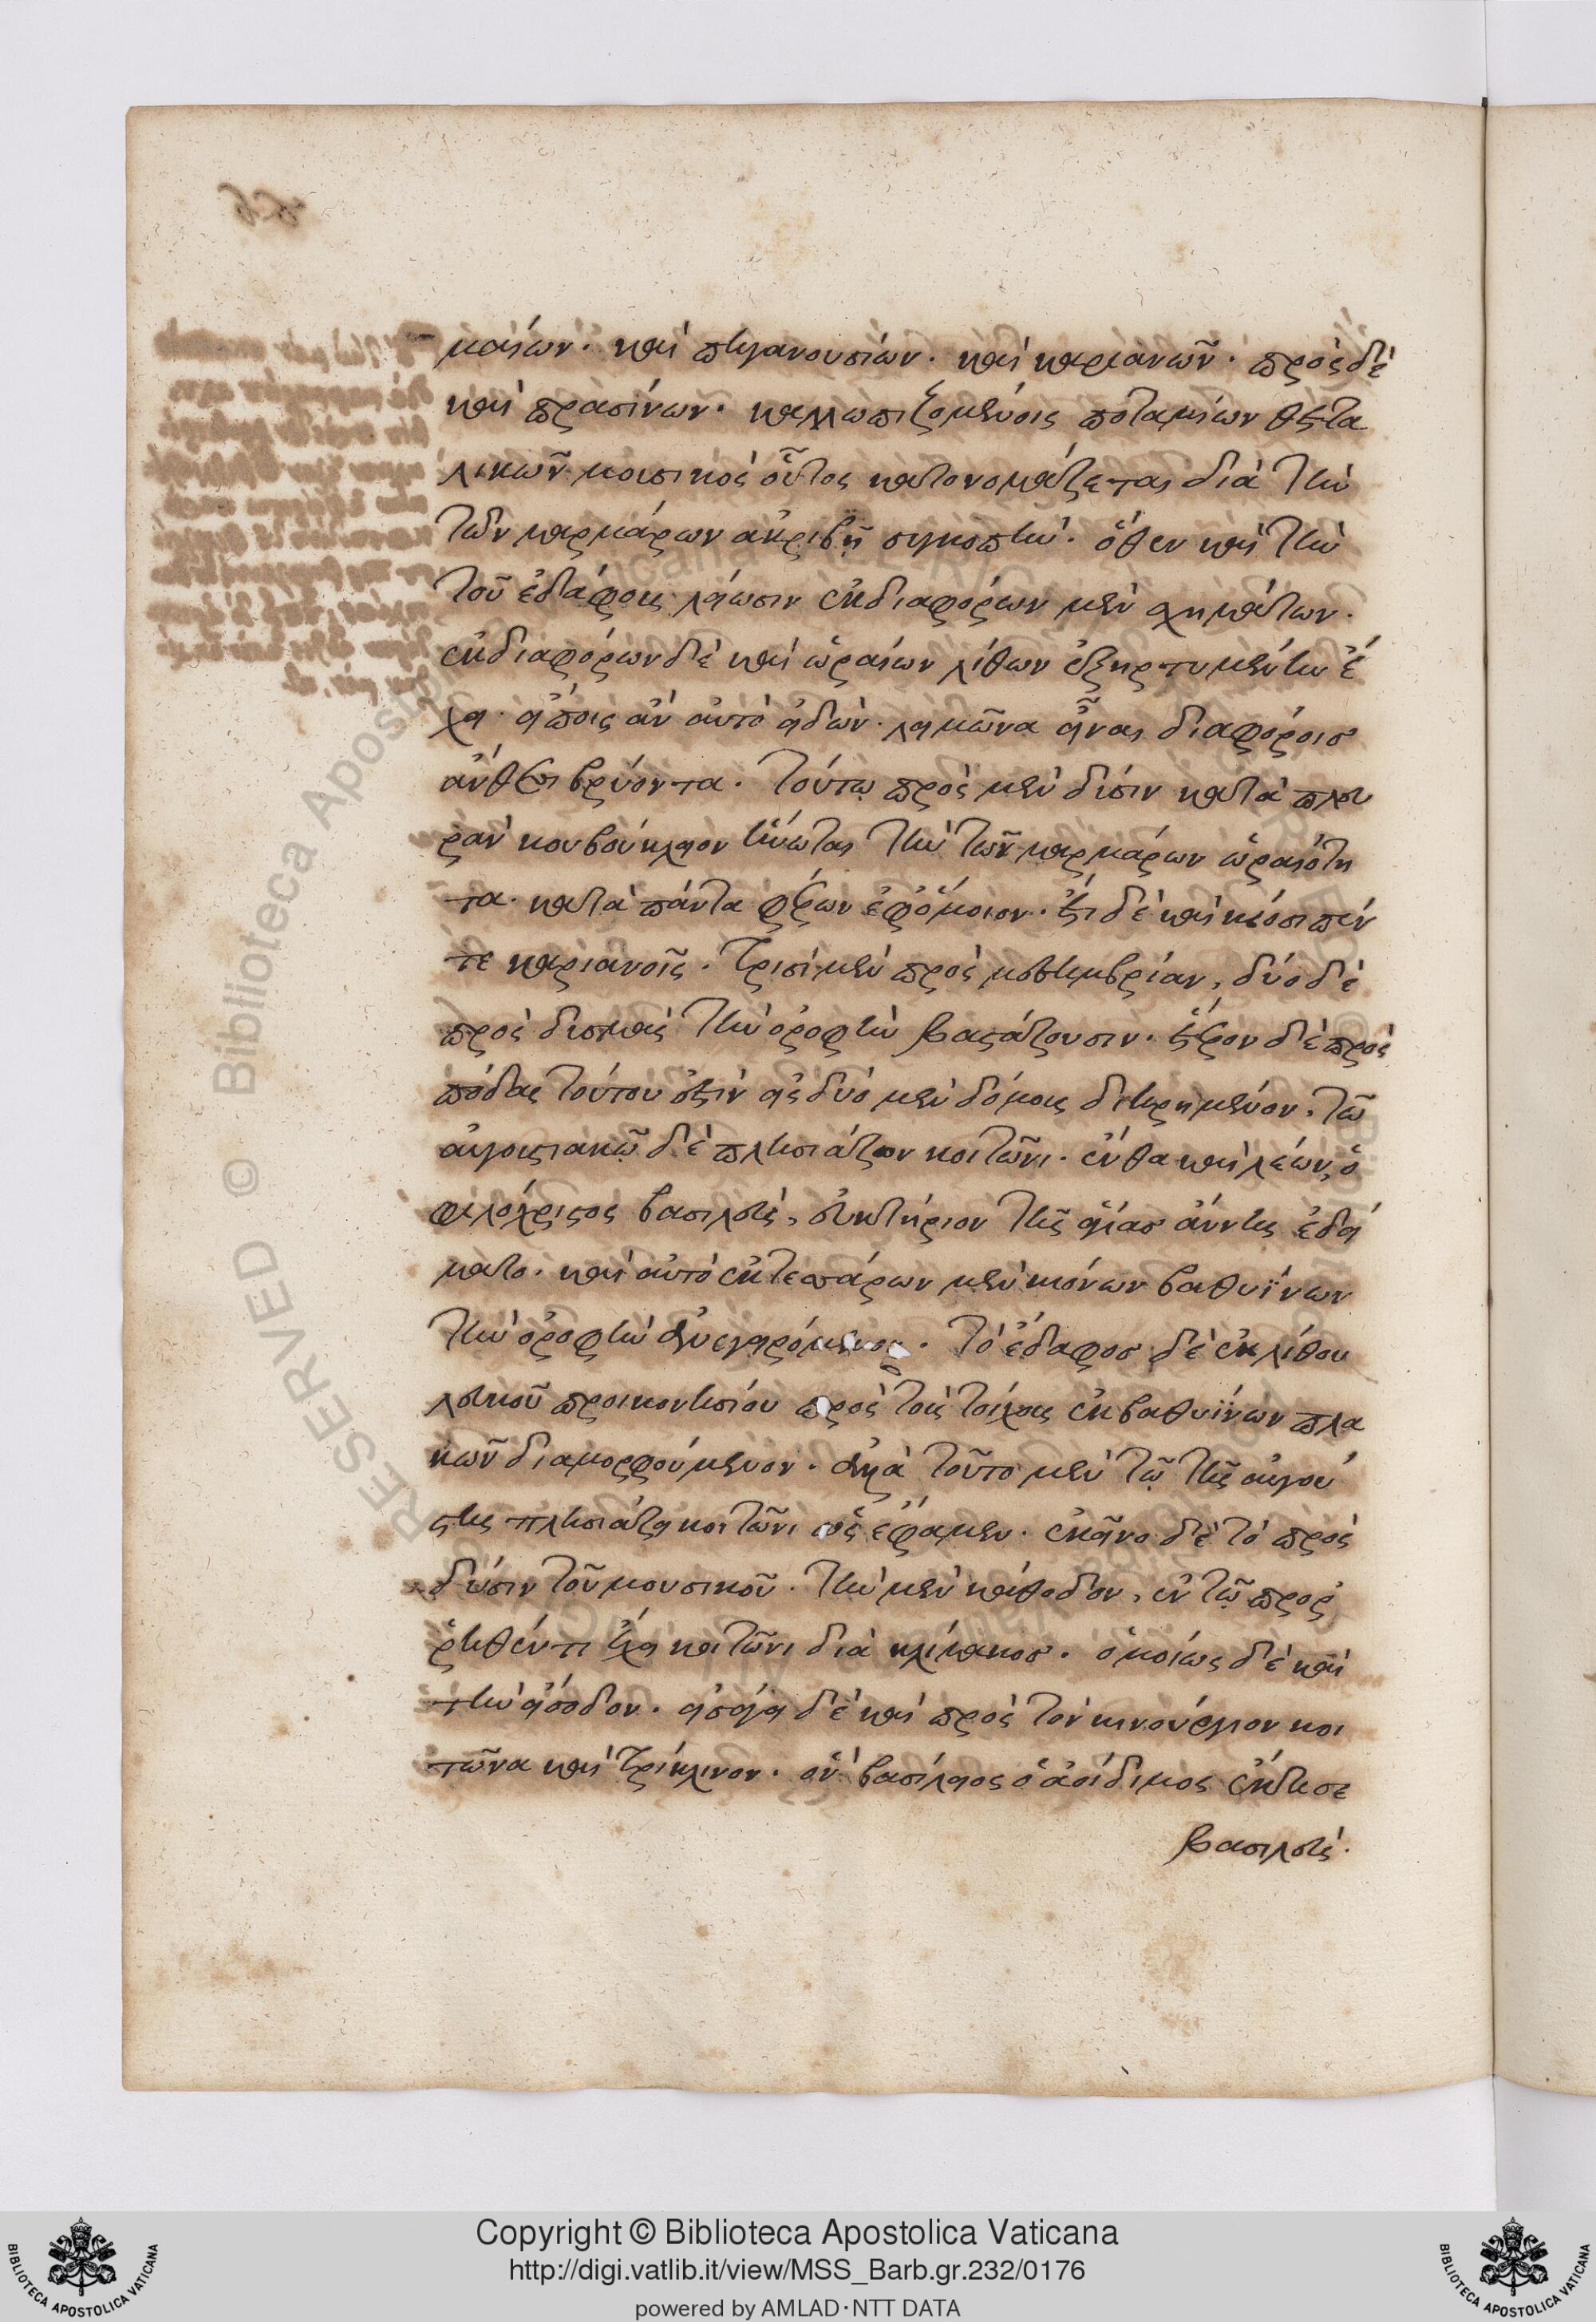 μαίων. καὶ πηγανουσίων. καὶ καριανῶν. πρὸς δὲ
καὶ πρασίνων. καλλωπιζομένοις ποταμίων θετα
λικῶν μουσικὸς οὗτος κατονομάζεται διὰ τὴν
τῶν μαρμάρων ἀκριβῆ συγκοπὴν. ὅθεν καὶ τὴν
τοῦ ἐδάφους λείωσιν ἐκ διαφόρων μὲν χημάτων.
ἐκ διαφόρων δὲ καὶ ὡραίων λίθων ἐξηρτυμένην ἔ
χει. εἴποις ἂν αὐτὸ εἰδὼν. λειμῶνα εἶναι διαφόροισ
ἄνθεσι βρύοντα. τούτῳ πρὸς μὲν δύσιν κατὰ πλευ
ρὰν κουβούκλειον ἥνωται τὴν τῶν μαρμάρων ὡραιότη
τα. κατὰ πάντα φέρων ἐφόμοιον. ἔτι δὲ καὶ κίοσι πέν
τε καριανοῖς. τρισὶ μὲν πρὸς μεσημβρίαν, δύο δὲ
πρὸς δυσμὰς τὴν ὀροφὴν βαστάζουσιν. ἕτερον δὲ πρὸς
πόδας τούτου ἐστὶν εἰς δύο μὲν δόμους διῃρημένον. τῶ
αὐγουστιακῷ δὲ πλησιάζον κοιτῶνι. ἔνθα καὶ λέων, ὁ
φιλόχριστος βασιλεὺς, εὐκτήριον τῆς ἁγίασ ἄννης ἐδεί
ματο. καὶ αὐτὸ ἐκ τεσσάρων μὲν κιόνων βαθυΐνων
τὴν ὀροφὴν ἀνεγειρόμενος. τὸ ἔδαφοσ δὲ ἐκ λίθου
λευκοῦ προικοννησίου πρὸς τοὺς τοίχους ἐκ βαθυΐνων πλα
κῶν διαμορφούμενον. ἀλλὰ τοῦτο μὲν τῷ τῆς αὐγού
στης πλησιάζει κοιτῶνι ὡς ἔφαμεν. ἐκεῖνο δὲ τὸ πρὸς
δύσιν τοῦ μουσικοῦ. τὴν μὲν κάθοδον, ἐν τῷ προς
ρηθέντι ἔχει κοιτῶνι διὰ κλίμακοσ. ὁμοίως δὲ καὶ
τὴν εἴσοδον. εἰσάγει δὲ καὶ πρὸς τὸν κενούργιον κοι
τῶνα καὶ τρίκλινον. ὃν βασίλειος ὁ ἀοίδιμος ἔκτησε
βασιλεὺς.
Copyright © Biblioteca Apostolica Vaticana
http://digi.vatlib.it/view/MSS_Barb.gr.232/0176
powered by AMLAD·NTT DATA